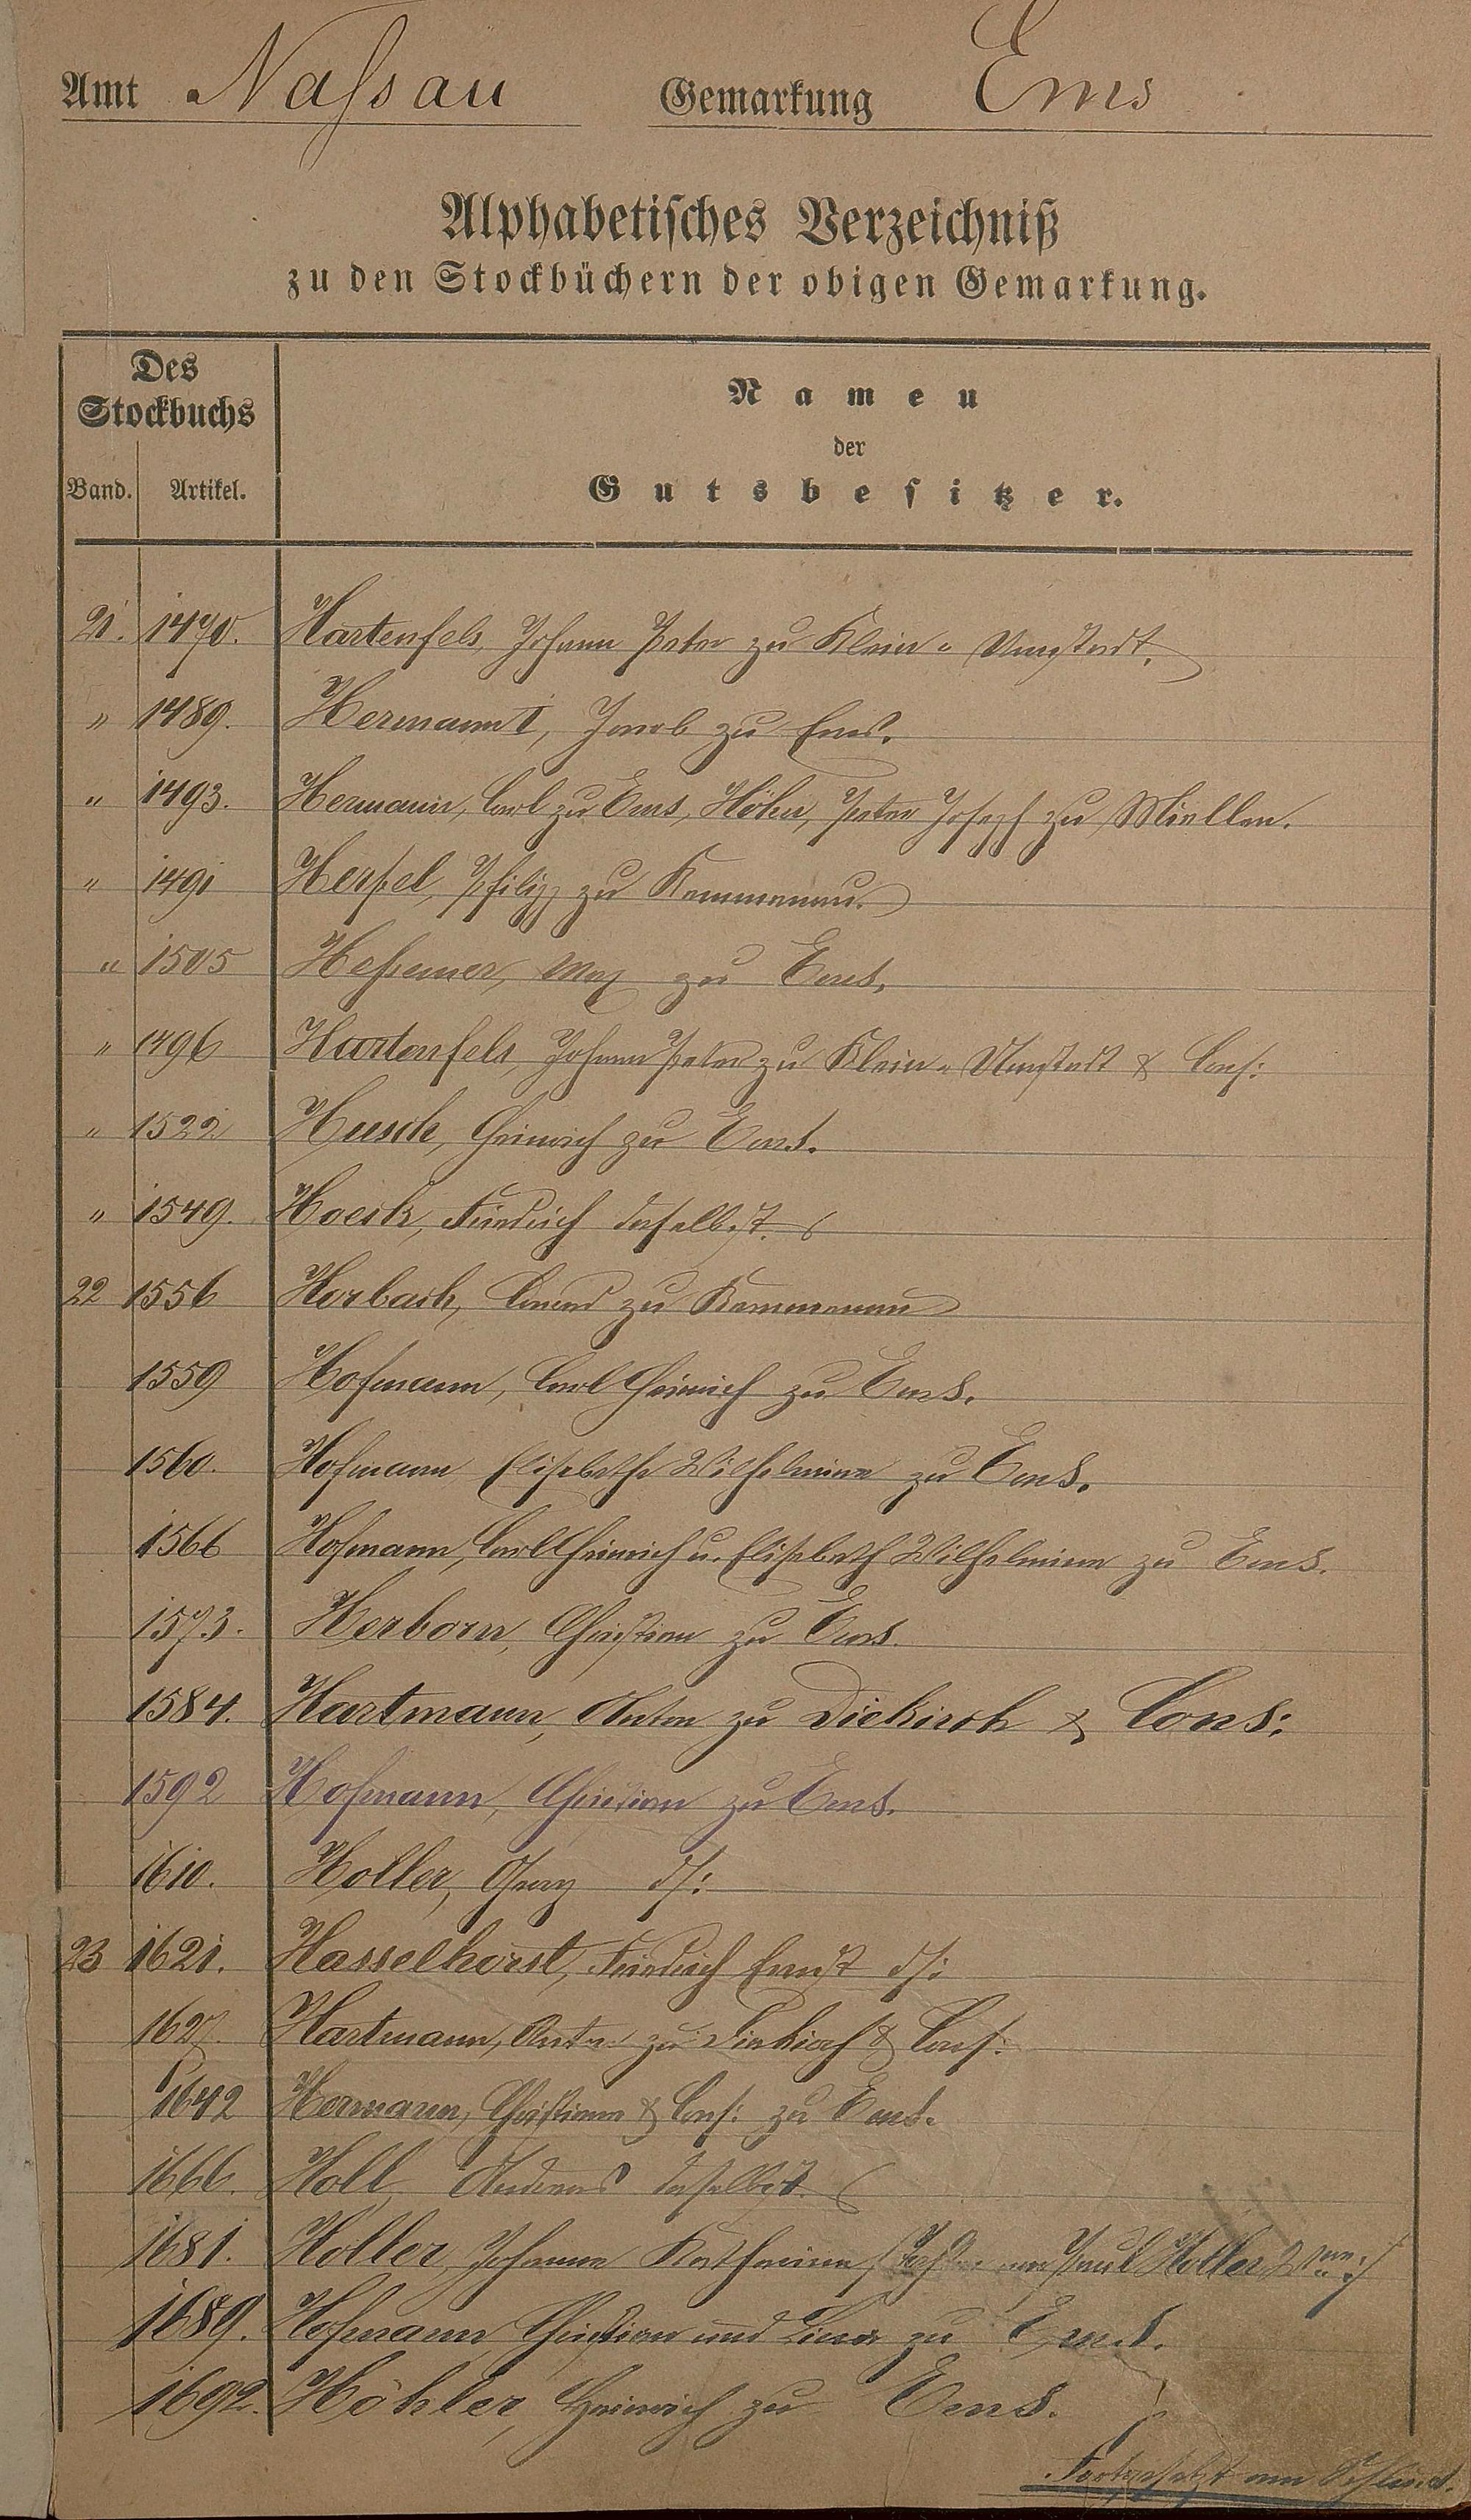 Amt Naſsau Gemarkung Ems
Alphabetiſches Verzeichniß
zu den Stockbüchern der obigen Gemarkung.
Des
Stockbuchs
Band. Artikel.
Namen
der
Gutsbeſitzer.
21. 1470. Hartenfels, Johann Peter zu Klein-Umstadt.
" 1489. Hermann I, Jacob zu Ems.
" 1493. Hermann, Carl zu Ems, Höhn, Peter Joseph zu Miellen.
" 1491 Herpel, Philipp zu Kemmenau.
" 1505 Heſsemer, Max zu Ems.
" 1496 Hartenfels, Johann Peter zu Klein-Umstadt & Cons:
" 1522 Husch, Heinrich zu Ems.
" 1549. Hoesch, Friedrich daselbst.
22 1556 Horbach, Conrad zu Kemmenau
1559 Hofmann, Carl Heinrich zu Ems.
1560. Hofmann Elisabethe Wilhelmine zu Ems.
1566 Hofmann, Carl Heinrich u. Elisabeth Wilhelmine zu Ems.
1573. Herborn, Christian zu Ems.
1584. Hartmann, Anton zu Diekirch & Cons:
1592 Hofmann, Christian zu Ems.
1610. Holler, Georg ds:
23 1621. Hasselhorst, Friedrich Ernst ds:
1627. Hartmann, Anton zu Diekirch & Cons:
1642 Hermann, Christiane & Cons: zu Ems.
1666. Holl Andreas daselbst.
1681. Holler, Johanna Katharina Paul Holler
1689. Hofmann Christian und Lina zu Ems.
1692. Höhler, Heinrich zu Ems.
Fortgesetzt am Schluß.